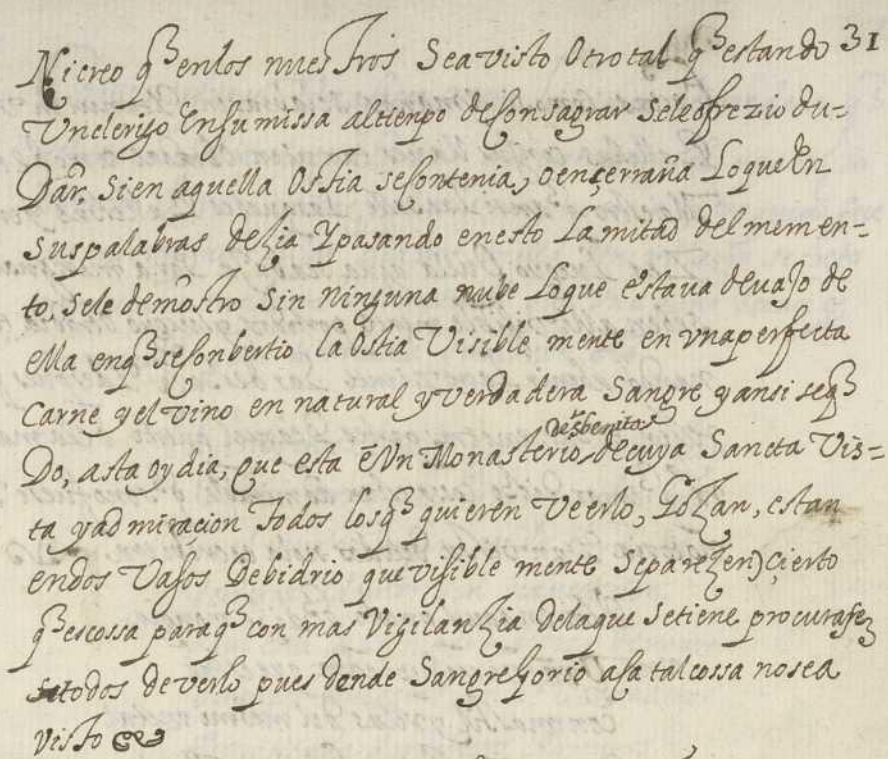 Ni creo q̃ enlos nuestros Sea visto Otro tal q̃ estando 31
Un clerigo En su missa al tienpo de Consagrar Sele ofrezio du=
Dar. Si en aquella Ostia se Contenia, o ençerraua Lo que En
Sus palabras deZia Y pasando en esto La mitad del memen=
to, Sele demostro Sin ninguna nube Lo que estaua deuajo de
ella en q̃ se Conbertio la Ostia Visible mente en vna perfecta
Carne y el vino en natural y verdadera Sangre y ansi se q̃
de sᵗ benitos
Do, asta oy dia, que esta ẽ Vn Monasterio de cuya Sancta Vis=
ta y admiraçion Todos los q̃ quieren Veerlo, GoZan, estan
en dos Vasos De bidrio que visible mente Se pareZen) Çierto
q̃ es cossa para q̃ con mas VigilanZia dela que Se tiene procurasen
todos de verlo pues dende San greZorio aCa tal cossa no sea
visto